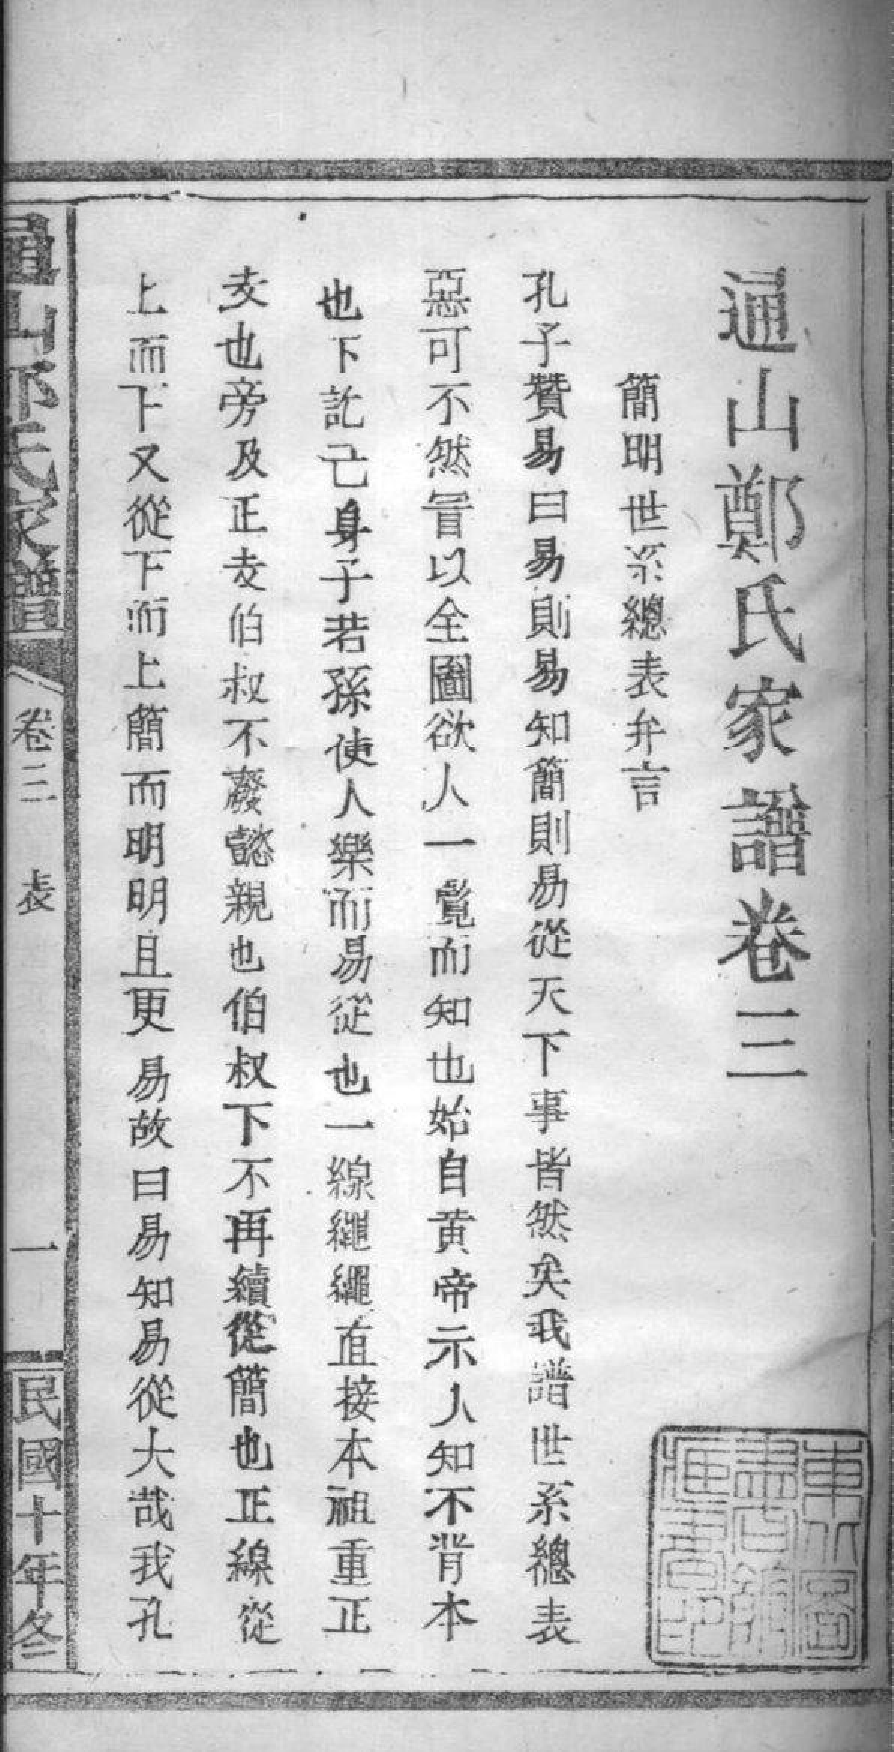 通山鄭氏家譜卷三
簡明世系總表弁言
孔子贊易曰易則易知簡則易從天下事皆然矣我譜世系總表
惡可不然冒以全圖欲人一覽而知也始自黃帝示人知不背本
也下訖己身子若孫使人樂而易從也一線繩繩直接本祖重正
支也旁及正支伯叔不廢懿親也伯叔下不再續從簡也正線從
上而下又從下而上簡而明明且更易故曰易知易從大哉我孔
通山鄭氏家譜
卷三
表
一
民國十年冬